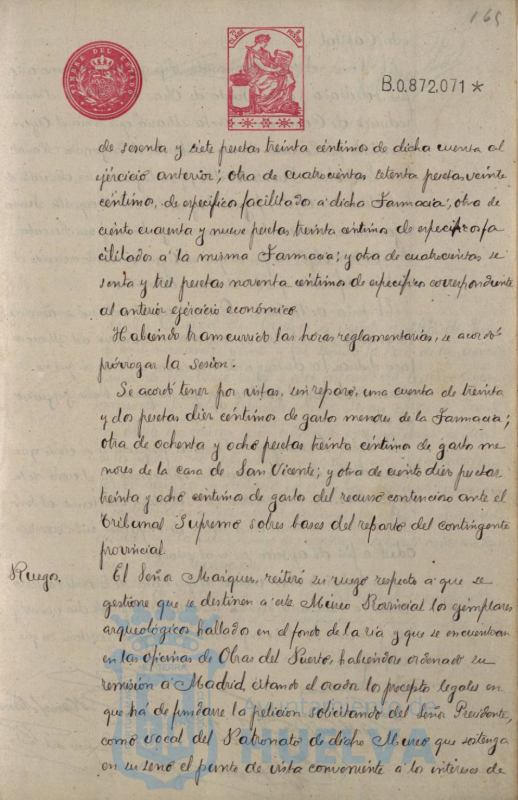 165
TIMBRE DEL ESTADO
B.0.872.071*
de sesenta y siete pesetas treinta céntimos de dicha cuenta al
ejercicio anterior; otra de cuatrocientas setenta pesetas veinte
céntimos, de específico facilitado a dicha Farmacia; otra de
ciento cuarenta y nueve pesetas treinta céntimos de específicos fa
cilitados a la misma Farmacia; y otra de cuatrocientas se
senta y tres pesetas noventa céntimos de específico correspondiente
al anterior ejercicio económico.
Habiendo transcurrido las horas reglamentarias, se acordó
prórrogar la sesion.
Se acordó tener por vistas, sin reparo, una cuenta de treinta
y dos pesetas diez céntimos de gastos menores de la Farmacia;
otra de ochenta y ocho pesetas treinta céntimos de gastos me
nores de la casa de San Vicente; y otra de ciento diez pesetas
treinta y ocho céntimos de gastos del recurso contencioso ante el
Tribunal Supremo sobres bases del reparto del contingente
provincial.
Ruego.
El Señor Marques, reiteró su ruego respecto a que se
gestione que se destinen a este Museo Provincial los ejemplares
arqueológicos hallados en el fondo de la ria y que se encuentran
en las oficinas de Obras del Puerto, habiendose ordenado su
remisión a Madrid, citando el orador los preceptos legales en
que há de fundarse la peticion solicitando del Señor Presidente,
como vocal del Patronato de dicho Museo que sostenga
en su seno el punto de vista conveniente a los intereses de
Ayuntamiento de
HUELVA